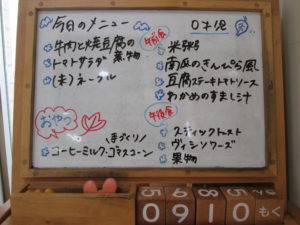 今日のメニュー
牛肉と焼豆腐の煮物
トマトサラダ
(未)ネーブル
おやつ
手づくり!
コーヒーミルク・ゴマスコーン
0才児
午前食
米粥
南瓜のきんぴら風
豆腐ステーキトマトソース
わかめのすまし汁
午後食
スティックトースト
ヴィシソワーズ
果物
0910 もく